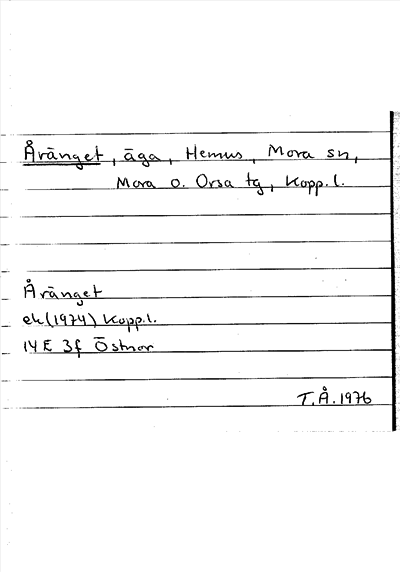 Åränget, äga, Hemus, Mora sn,
Mora o. Orsa tg, Kopp.l.
Åränget
ek(1974) Kopp.l.
14E 3f Östnor
T.Å.1976